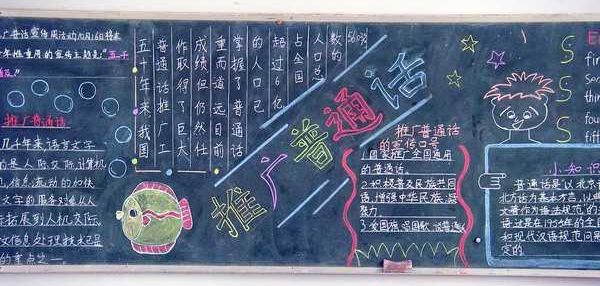 广普话宣传周活动10月16日将
推广普通话
几十年来语言文字
的是人际交际,计算机
息流动的加快
文字的服务对象从人
拓展到人机交际,
信息处理技术已是
的重点之一
五十年来我国
普通话推广工
作取得了巨大
成绩但仍然任
重而道远目前
掌握了普通话
的人口已
超过6亿
占全国
人口总
数的
推广普通话
推广普通话
的宣传口号
1.国家推广全国通用
的普通话。
2.积极普及民族共同
语,增强中华民族凝
聚力
3.爱国旗 唱国歌 说普通
S
S
S
fir
Sec
thi
fou
fif
小知识
普通话是以北京语
北方话为基本方言,以
文著作为语法规范的
语这是在1955年的全国
和现代汉语规范问
定的